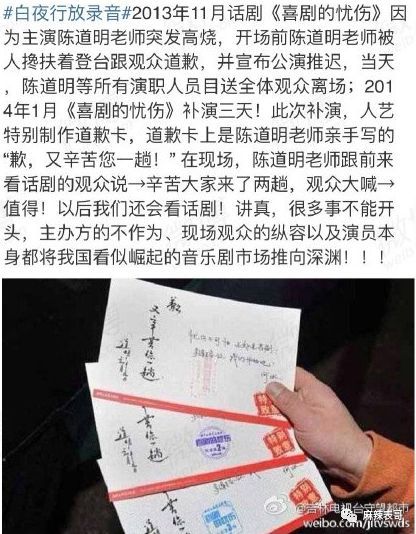 #白夜行放录音#2013年11月话剧《喜剧的忧伤》因
为主演陈道明老师突发高烧，开场前陈道明老师被
人搀扶着登台跟观众道歉，并宣布公演推迟，当天
，陈道明等所有演职人员目送全体观众离场；201
4年1月《喜剧的忧伤》补演三天！此次补演，人艺
特别制作道歉卡，道歉卡上是陈道明老师亲手写的
“歉，又辛苦您一趟！”在现场，陈道明老师跟前来
看话剧的观众说→辛苦大家来了两趟，观众大喊→
值得！以后我们还会看话剧！讲真，很多事不能开
头，主办方的不作为、现场观众的纵容以及演员本
身都将我国看似崛起的音乐剧市场推向深渊！！！
歉
又辛苦您一趟
吉林电视台守望都市
weibo.com/jltvswds
麻辣表哥